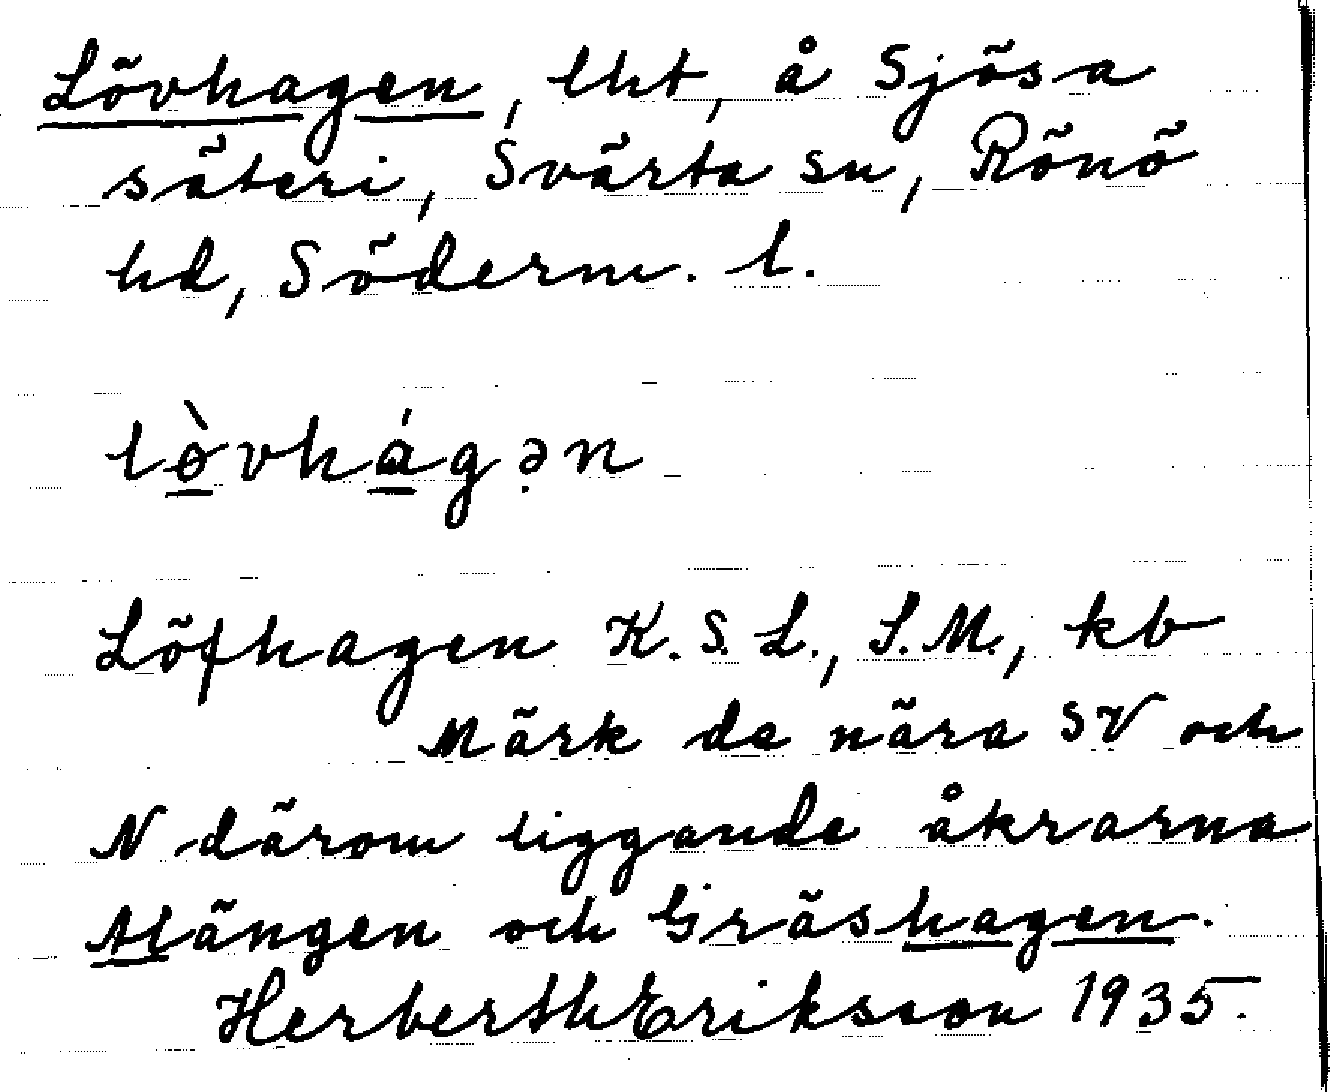 Lövhagen, lht, å Sjösa
säteri, Svärta sn, Rönö
hd, Söderm. l.
lø̀vhágə̣n
Löfhagen K.S.L., S.M., kb
Märk de nära SV och
N därom liggande åkrarna
Alängen och Gräshagen.
Herberth Eriksson 1935.